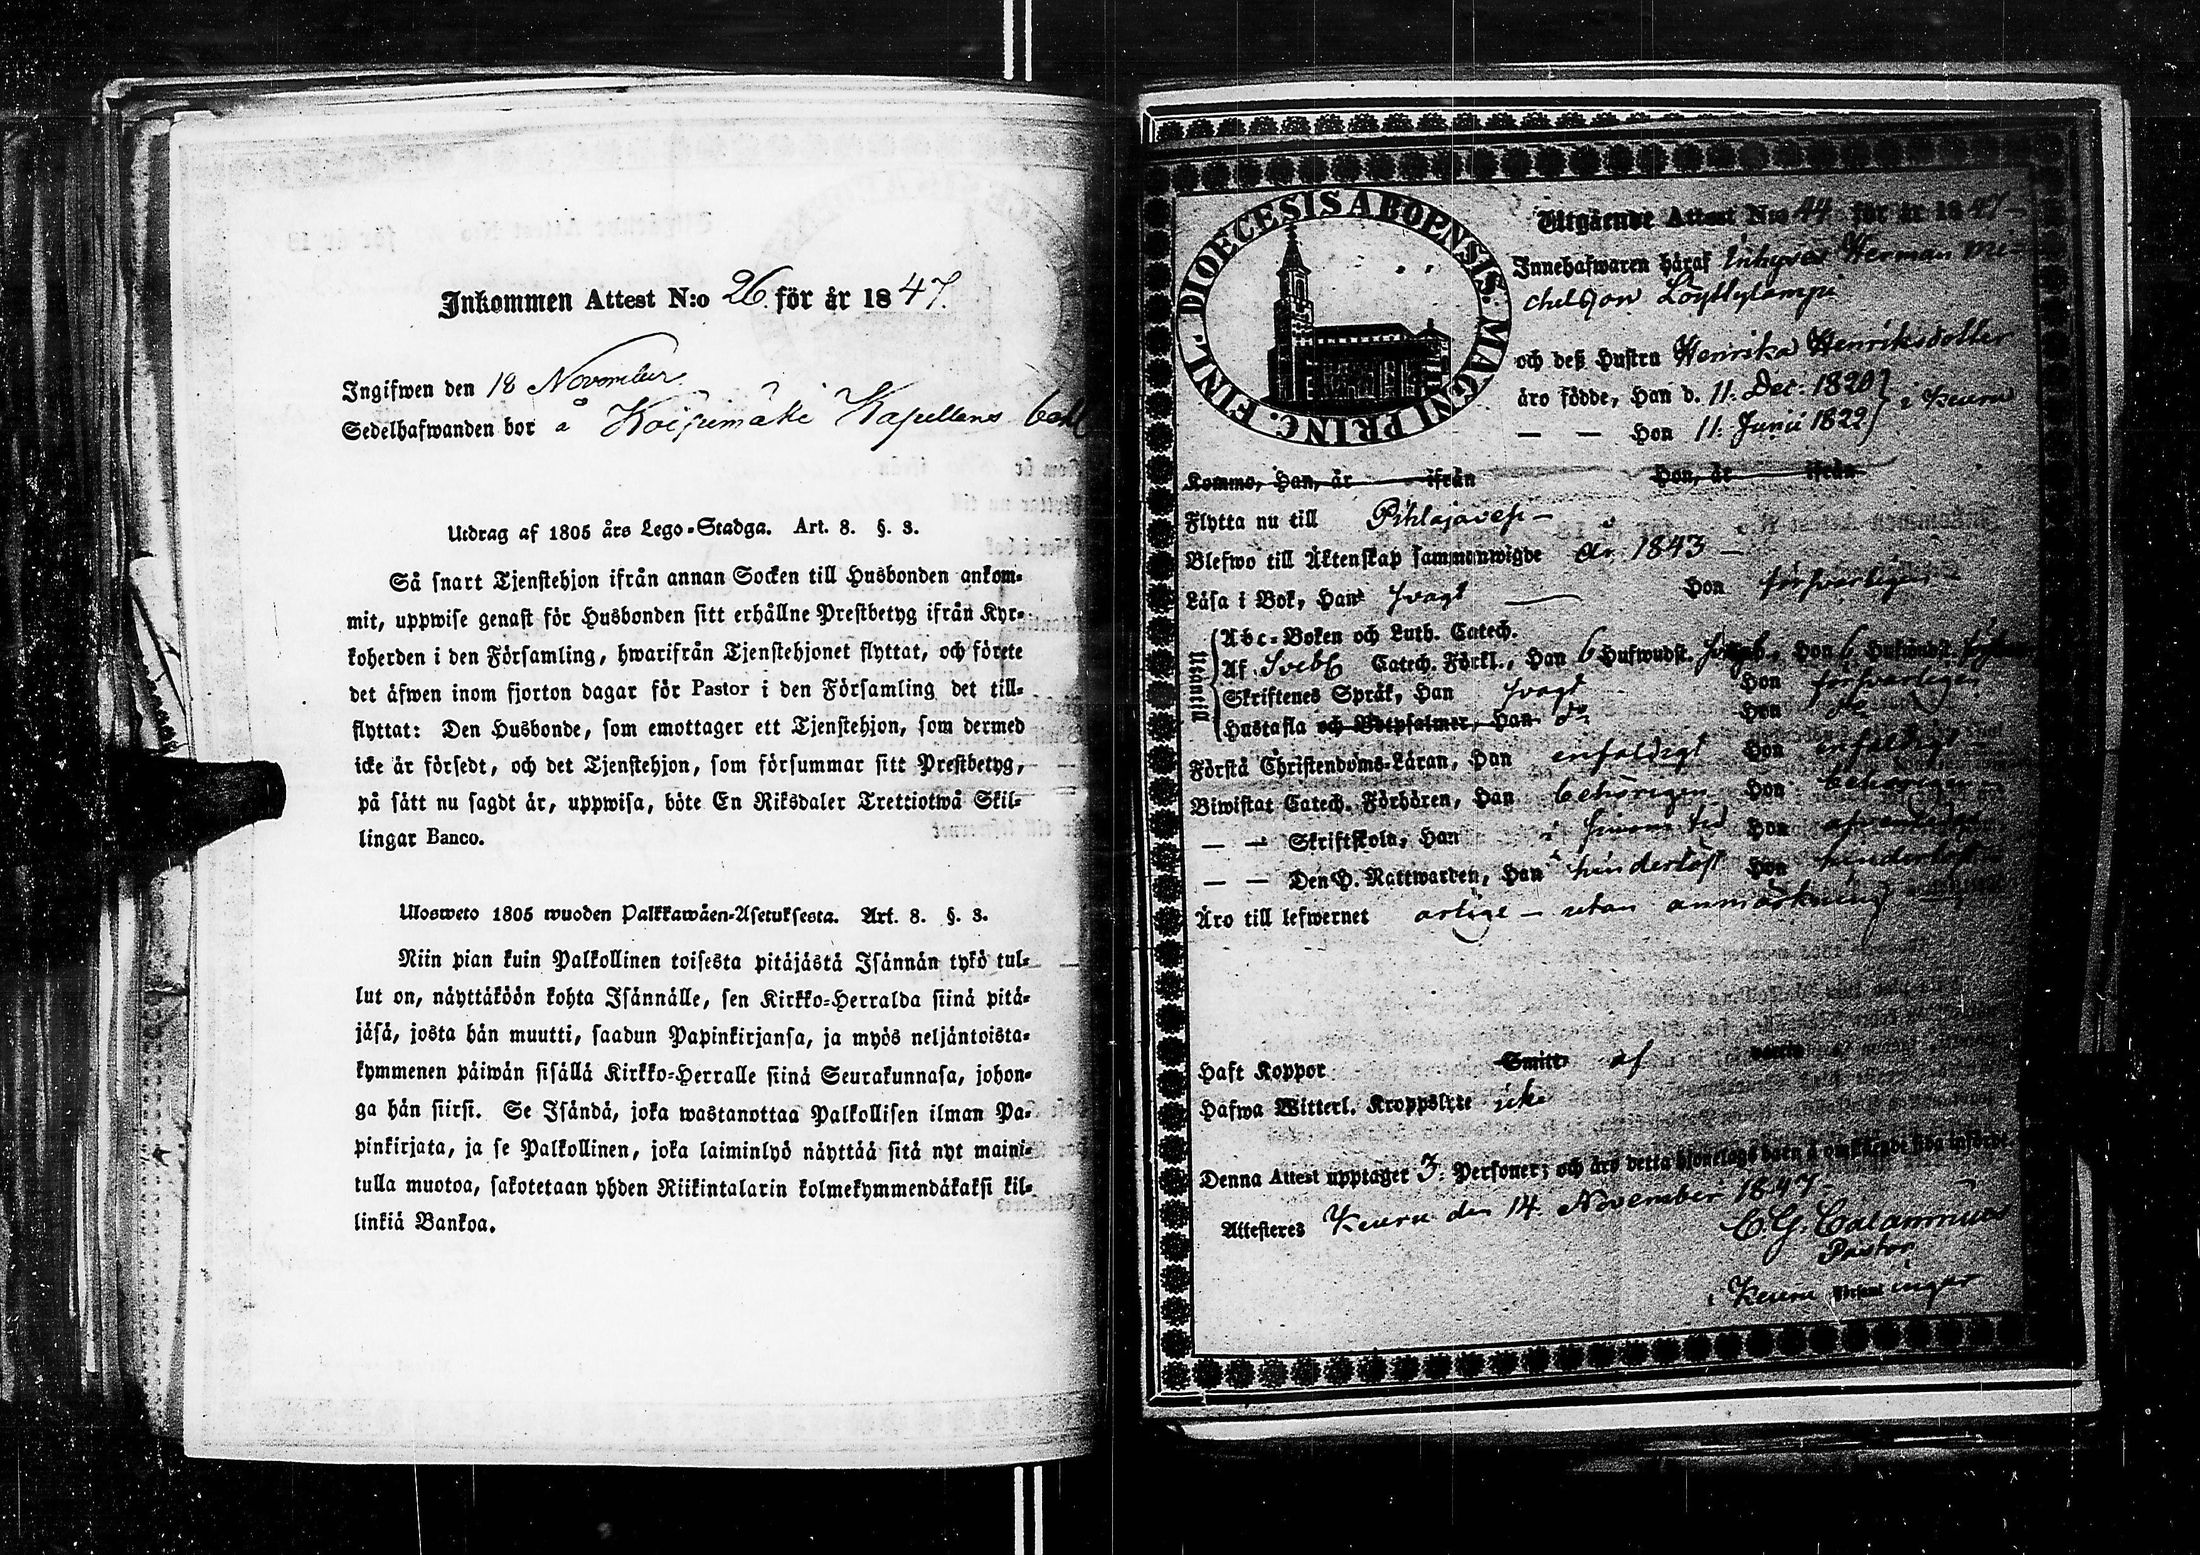 Inkommen Attest N:o 26 för år 1847.
Ingifwen den 18 November
Sedelhafwanden bor å Koipimäki Kapellans
Utdrag af 1805 års Lego-Stadga. Art. 8. §. 3.
Så snart Tjenstehjon ifrån annan Socken till Husbonden ankom-
mit, uppwise genast för Husbonden sitt erhållne Prestbetyg ifrån Kyr-
koherden i den Församling, hwarifrån Tjenstehjonet flyttat, och förete
det äfwen inom fjorton dagar för Pastor i den Församling det till-
flyttat: Den Husbonde, som emottager ett Tjenstehjon, som dermed
icke är försedt, och det Tjenstehjon, som försummar sitt Prestbetyg,
på sätt nu sagdt är, uppwisa, böte En Riksdaler Trettiotwå Skil-
lingar Banco.
Ulosweto 1805 wuoden Palkkawäen-Asetuksesta. Art. 8. §. 3.
Niin pian kuin Palkollinen toisesta pitäjästä Isännän tykö tul-
lut on, näyttäköön kohta Isännälle, sen Kirkko-Herralda siinä pitä-
jäsä, josta hän muutti, saadun Papinkirjansa, ja myös neljäntoista-
kymmenen päiwän sisällä Kirkko-Herralle siinä Seurakunnasa, johon-
ga hän siirsi. Se Isändä, joka wastanottaa Palkollisen ilman Pa-
pinkirjata, ja se Palkollinen, joka laiminlyö näyttää sitä nyt maini-
tulla muotoa, sakotetaan yhden Riikintalarin kolmekymmendäkaksi kil-
linkiä Bankoa.
DIOECESIS ABOENSIS. MAGNI PRINC. FINL.
Utgående Attest N:o 44 för år 1847
Innehafwaren häraf Inhyses Herman Mi-
chelsson Löytlylampi
och deß Hustru Henrika Henriksdotter
äro födde, Han d. 11. Dec: 1820 } i Keuru
— — Hon 11. Junii 1822 }
Kommo, Han, år ifrån Hon, år ifrån
Flytta nu till Pihlajavesi
Blefwo till Äktenskap sammanwigde år 1843
Läsa i Bok, Han svagt Hon försvarligen
Utanell Abc-Boken och Luth. Catech.
Af Sveb. Catech. Förkl., Han 6 Hufwudst. Hon 6 Hufwudst.
Skriftenes Språk, Han svagt Hon försvarligen
Hustafla och Botpsalmer, Han do Hon do
Förstå Christendoms-Läran, Han enfaldigt Hon enfaldigt
Biwistat Catech. Förhören, Han behörigen Hon behörigen
— — Skriftskola, Han i sinom tid Hon
— — Den H. Nattwarden, Han hinderlöst Hon hinderlöst
Äro till lefwernet artige utan anmärkning
Haft Koppor Smitto af
Hafwa Witterl. Kroppslyte icke
Denna Attest upptager 3. Personer; och äro detta hjonelags barn å omstående sida införde.
Attesteres Keuru den 14. November 1847
C. G. Calamnius
Pastor
i Keuru Församl ingar